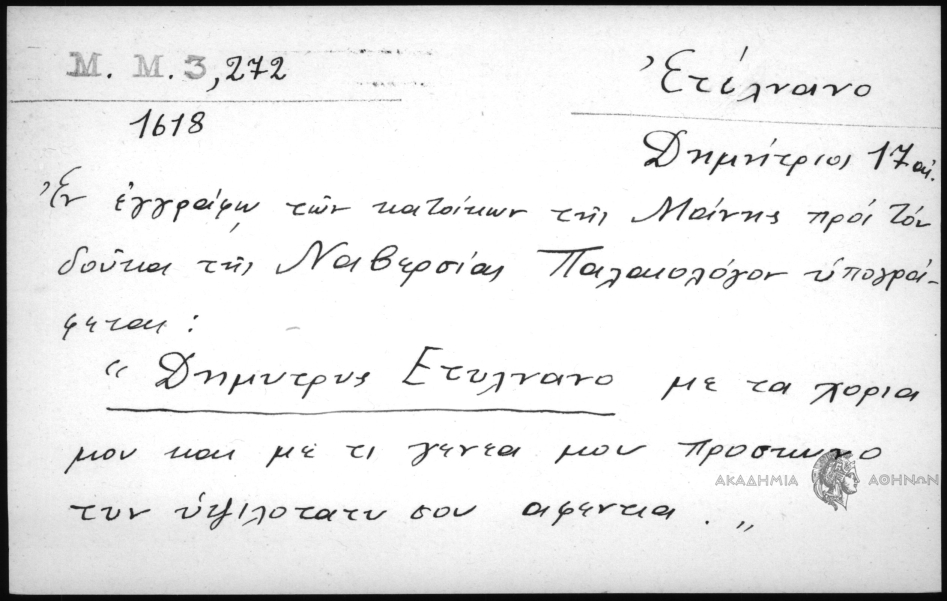 Μ. Μ. 3, 272
Ἐτύλνανο
1618
Δημήτριος 17 αἰ.
Ἐν ἐγγράφῳ τῶν κατοίκων τῆς Μάνης πρὸς τὸν
δοῦκα τῆς Ναβερσίας Παλαιολόγον ὑπογρά-
φεται:
“ Δημυτρυς Ετυλνανο με τα χορια
μου και με τι γενεα μου προσκυνο
τυν ὑψιλοτατυ σου αφεντια. „
ΑΚΑΔΗΜΙΑ ΑΘΗΝΩΝ